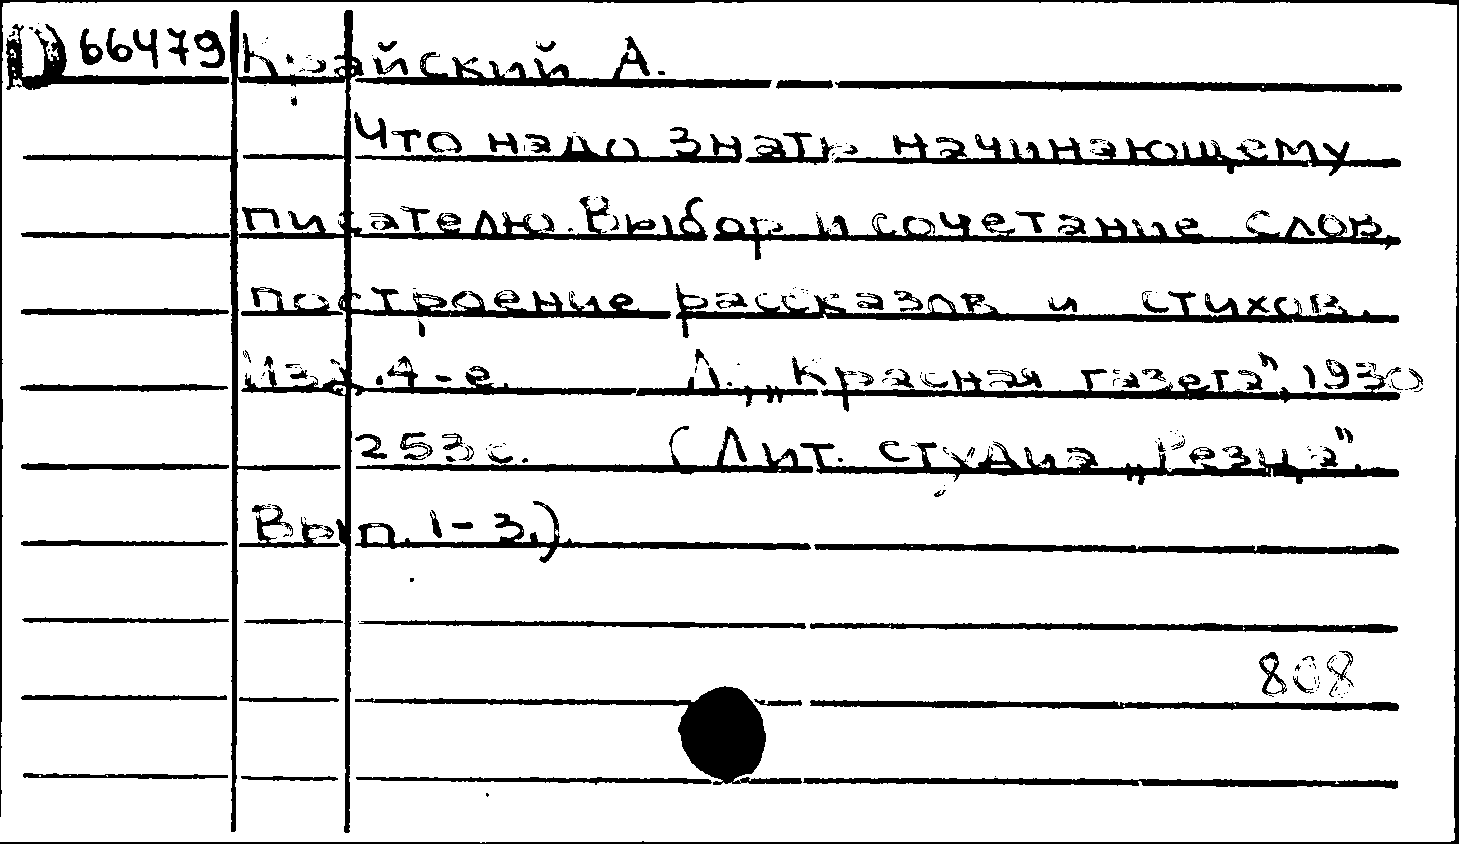 D 66479 Крайский А.
Что надо знать начинающему
писателю. Выбор и сочетание слов,
построение рассказов и стихов.
Изд. 4-е. Л., „Красная газета", 1930
253 с. (Лит. студиа „Резца".
Вып. 1-3.).
808